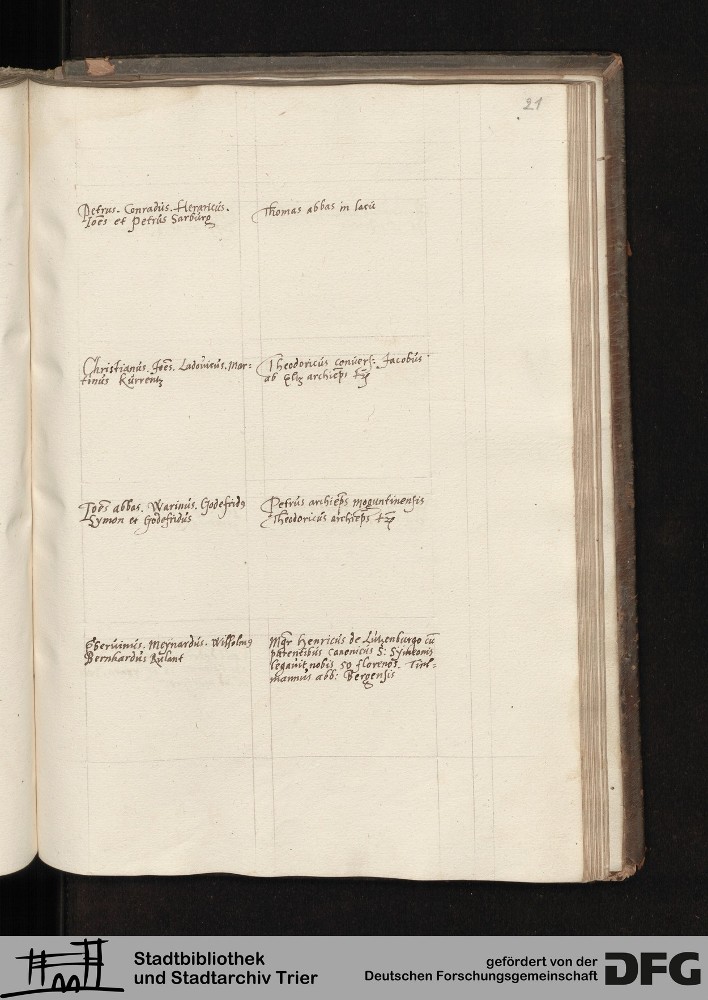 21
Petrus. Conradus. Henricus.
Ioēs et Petrus Sarburg
Thomas abbas in lacu
Christianus. Joēs. Ladovicus. Mar=
tinus Kurrentz
Theodoricus convers: Jacobus
ab Eltz archiēps
Ioēs abbas. Warinus. Godefridꝯ
Symon et Godefridus
Petrus archiēps moguntinensis
Theodoricus archiēps
Gberuinus. Meynardus. Wilhelmꝯ
Bernhardus Rulant
Mgr Henricus de Lutzenburgo cū
parentibus canonicus S: Symeonis
legavit nobis 50 florenos. Til=
mannus abb: Bergensis
Stadtbibliothek
und Stadtarchiv Trier
gefördert von der
Deutschen Forschungsgemeinschaft
DFG